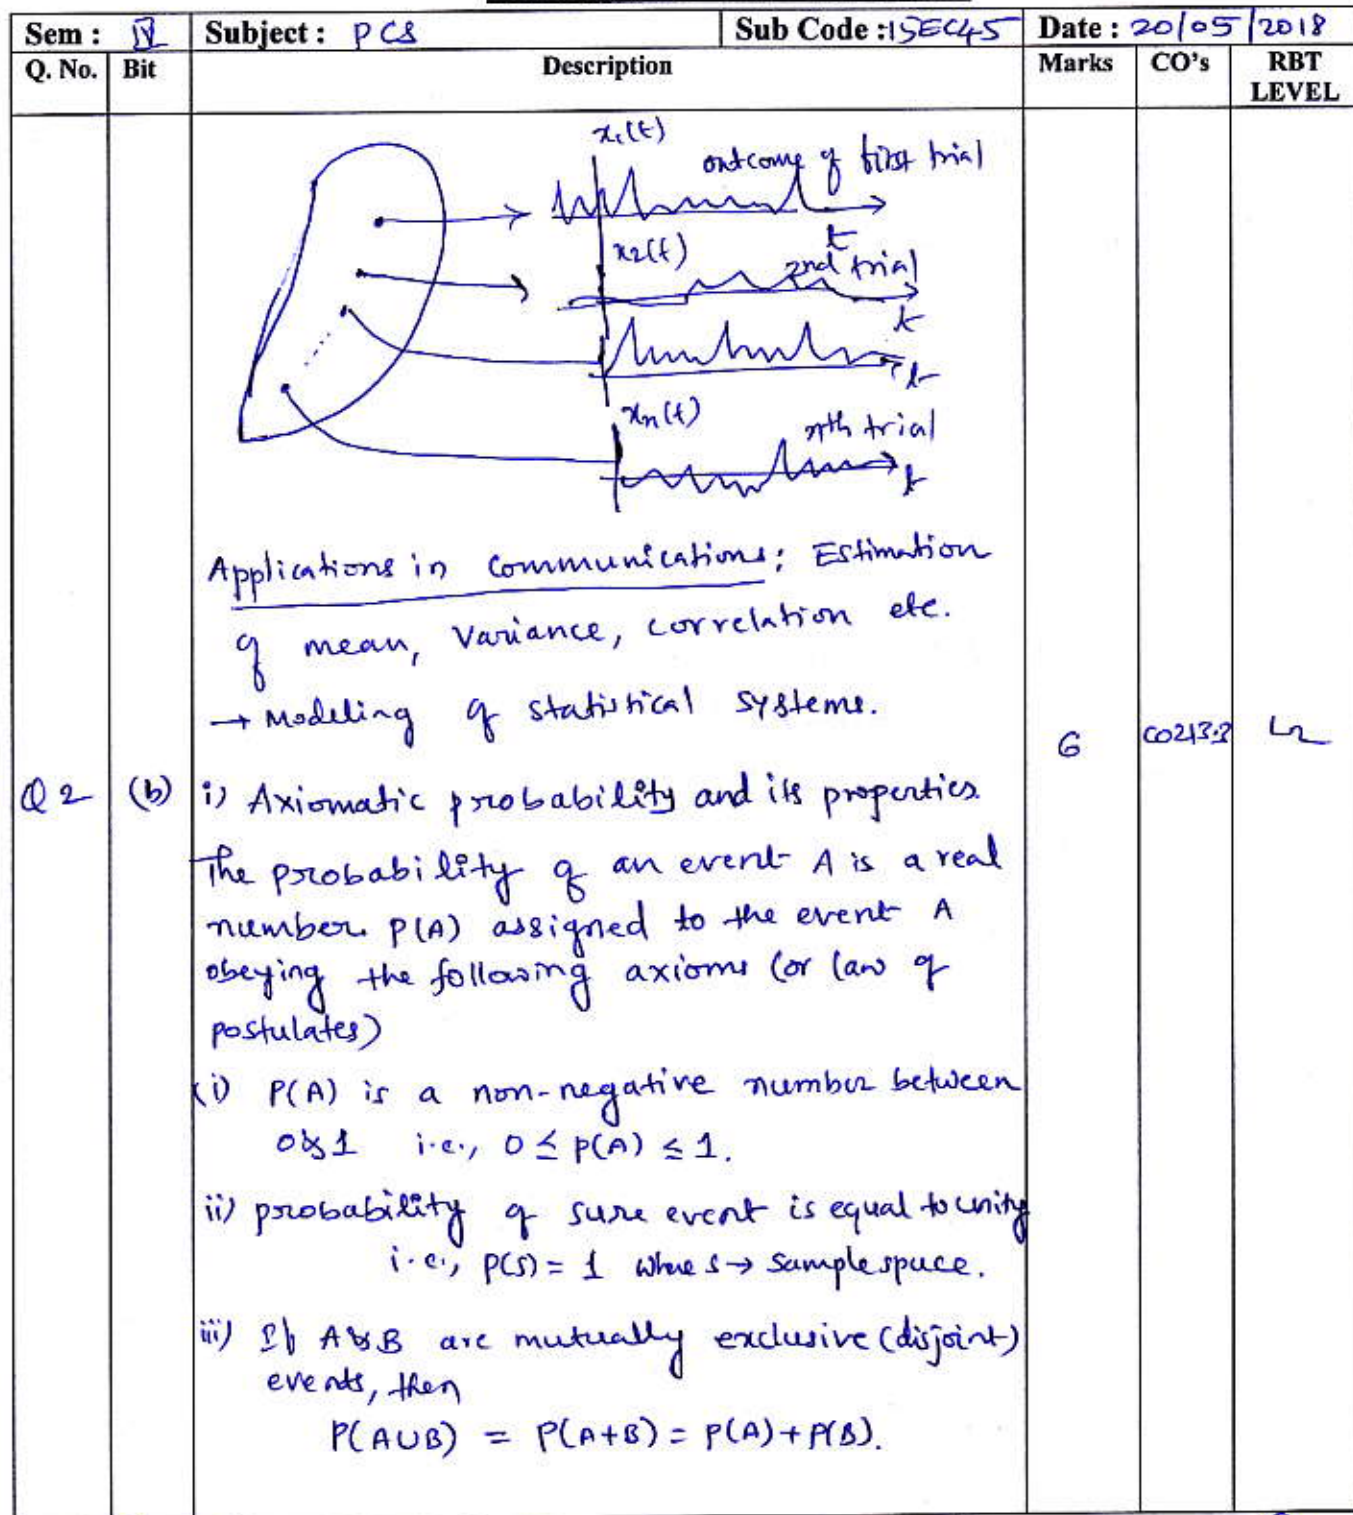 Sem : IV Subject : PCS Sub Code : 15EC45 Date : 20/05/2018
Q. No. Bit Description Marks CO's RBT LEVEL
x₁(t)
outcome of first trial
t
x2(t)
2nd trial
t
t
xn(t)
nth trial
t
Applications in communications: Estimation
of mean, Variance, correlation etc.
→ Modeling of statistical systems.
6 CO213.3 L2
Q2 (b) i) Axiomatic probability and its properties
The probability of an event A is a real
number P(A) assigned to the event A
obeying the following axioms (or law of
postulates)
(i) P(A) is a non-negative number between
0 & 1 i.e., 0 ≤ P(A) ≤ 1.
ii) probability of sure event is equal to unity
i.e., P(S) = 1 where s → sample space.
iii) If A & B are mutually exclusive (disjoint)
events, then
P(A∪B) = P(A+B) = P(A) + P(B).